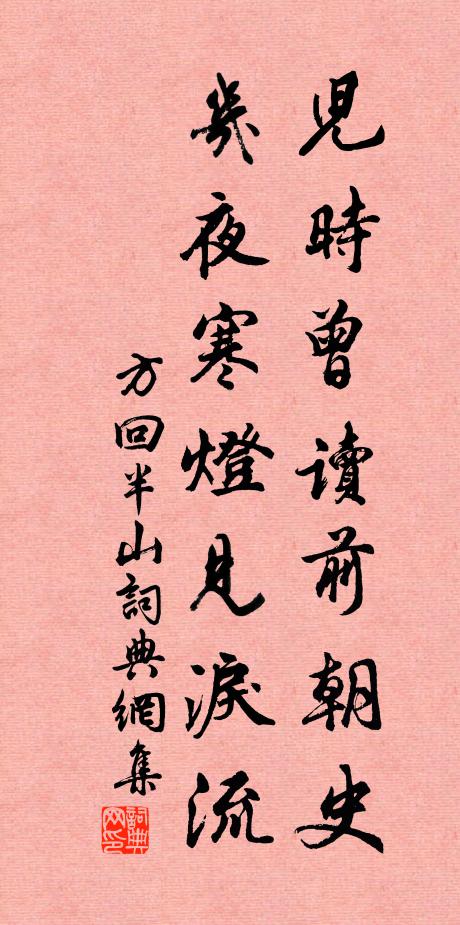 児時曽讀前朝史
幾夜寒燈見淚流
方回半山詞典網集
詞典
网印